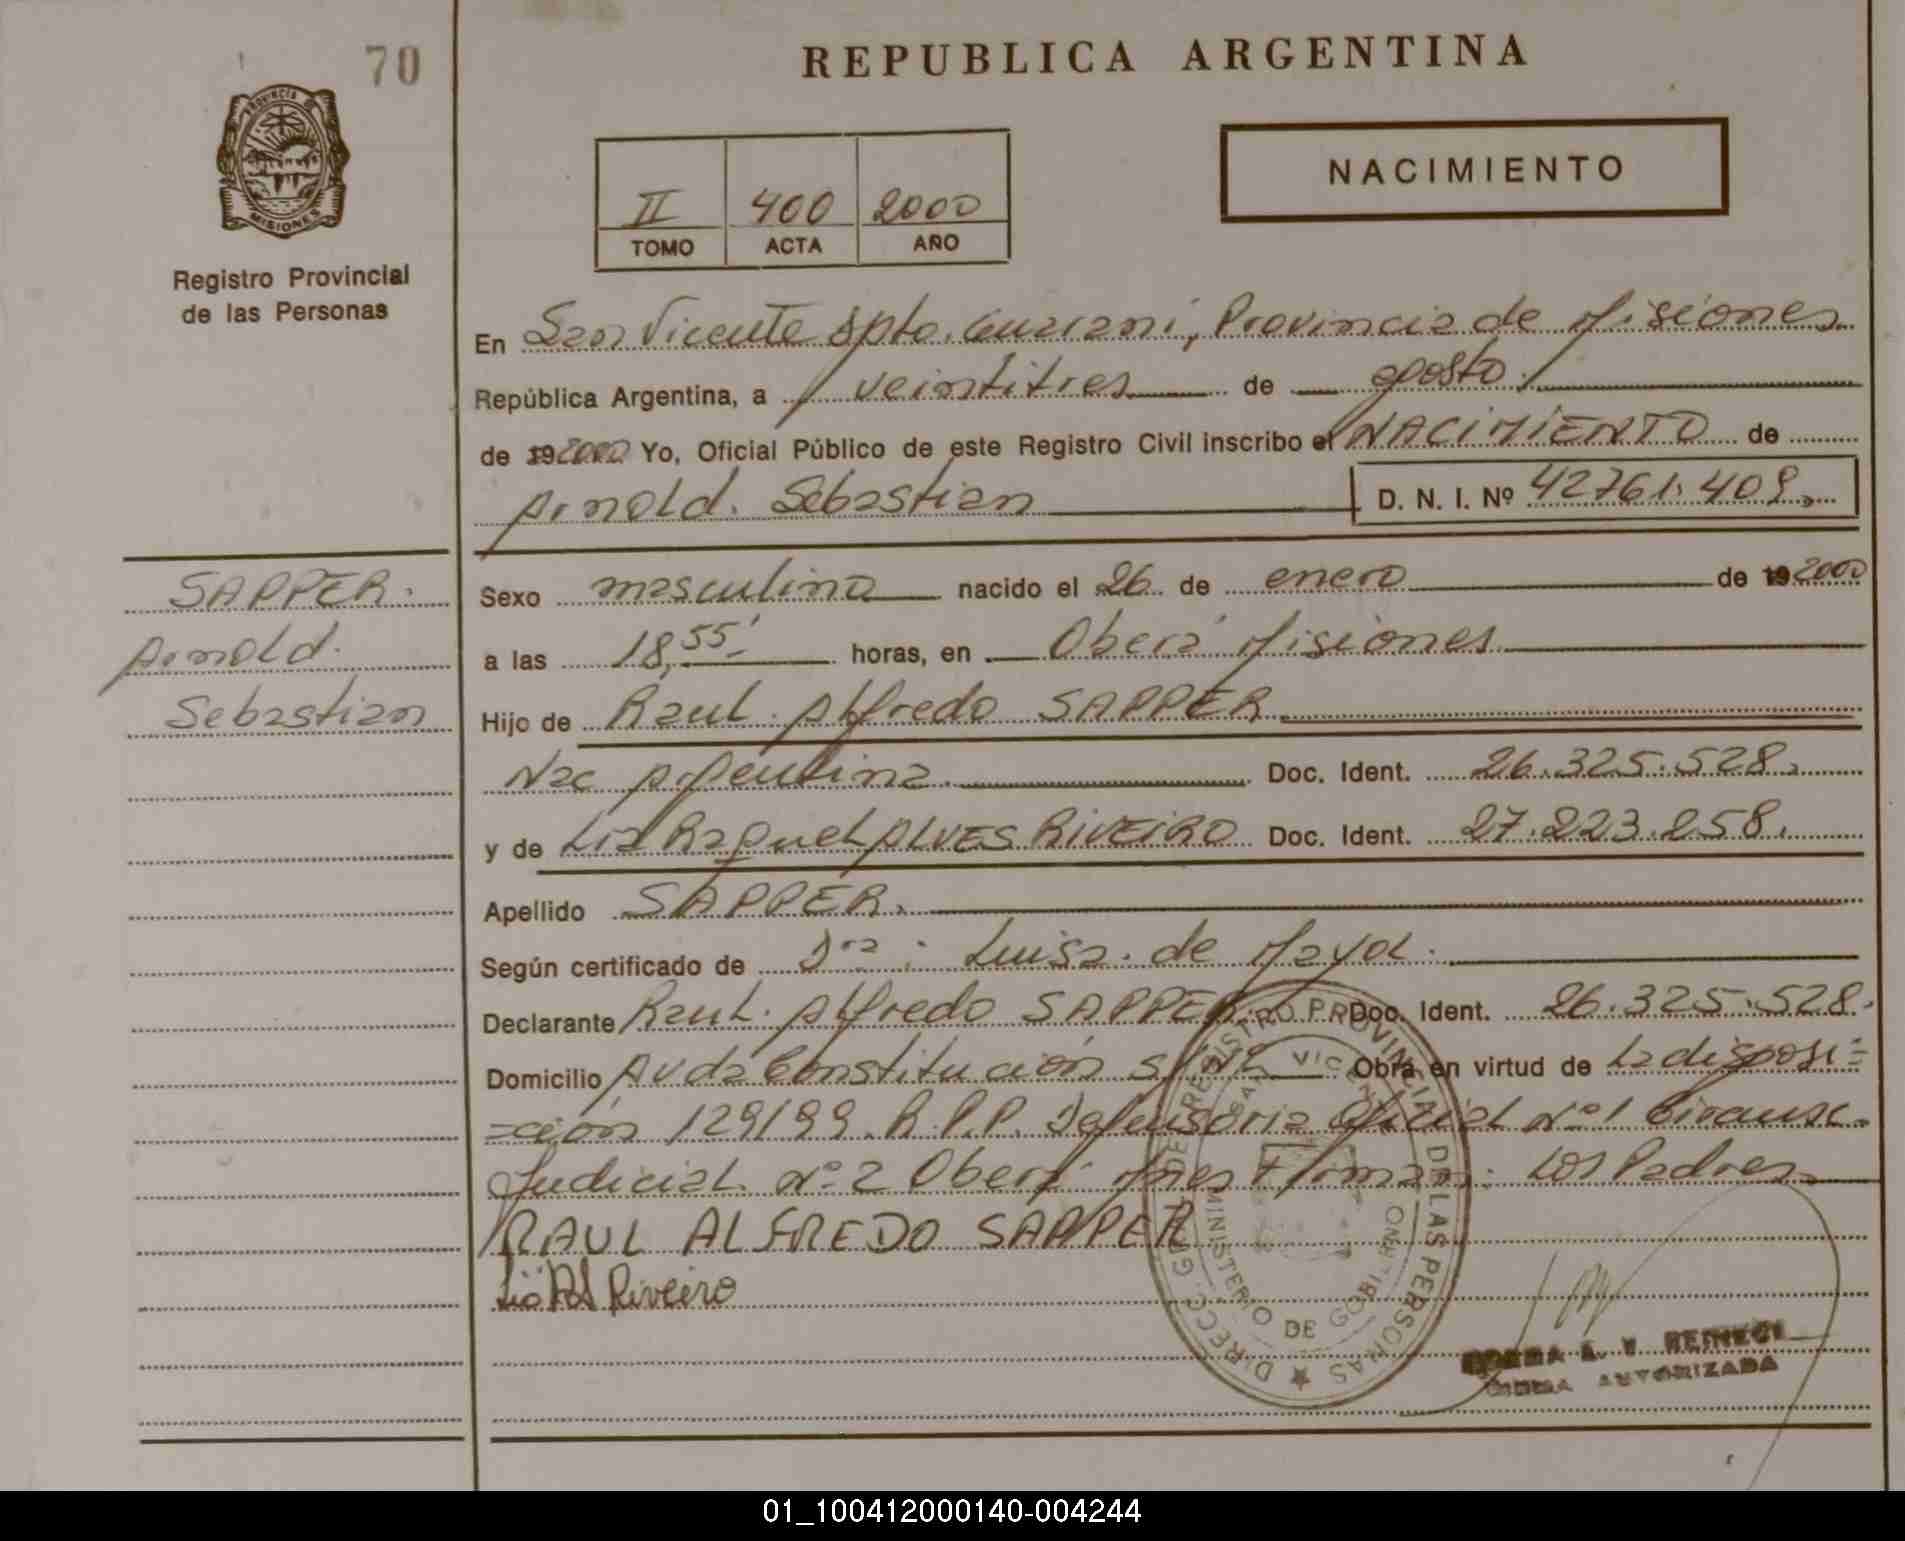 70
REPUBLICA ARGENTINA
PROVINCIA DE
MISIONES
Registro Provincial
de las Personas
II 400 2000
TOMO ACTA AÑO
NACIMIENTO
En San Vicente Dpto. Guarani, Provincia de Misiones
República Argentina, a veintitres de agosto.
de 19 2000 Yo, Oficial Público de este Registro Civil inscribo el NACIMIENTO de
Arnold. Sebastian D. N. I. Nº 42761.409
SAPPER.
Arnold.
Sebastian
Sexo masculino nacido el 26 de enero de 19 2000
a las 18,55' horas, en Oberá Misiones
Hijo de Raul. Alfredo SAPPER
Nac Argentina. Doc. Ident. 26.325.528.
y de Lia Raquel ALVES RIVEIRO Doc. Ident. 27.223.258.
Apellido SAPPER.
Según certificado de Dra: Luisa. de Mayol.
Declarante Raul. Alfredo SAPPER Doc. Ident. 26.325.528.
Domicilio Avda Constitución s/Nº Obra en virtud de La disposi=
=ción 129/99. R.P.P. Defensoria Oficial nº1 Circunsc.
Judicial. nº2 Oberá Mnes Firman: Los Padres
RAUL ALFREDO SAPPER
Riveiro
DIRECC. GRAL. DE REGISTRO PROVINCIAL DE LAS PERSONAS
SAN VICENTE
MINISTERIO DE GOBIERNO
FIRMA AUTORIZADA
01_100412000140-004244